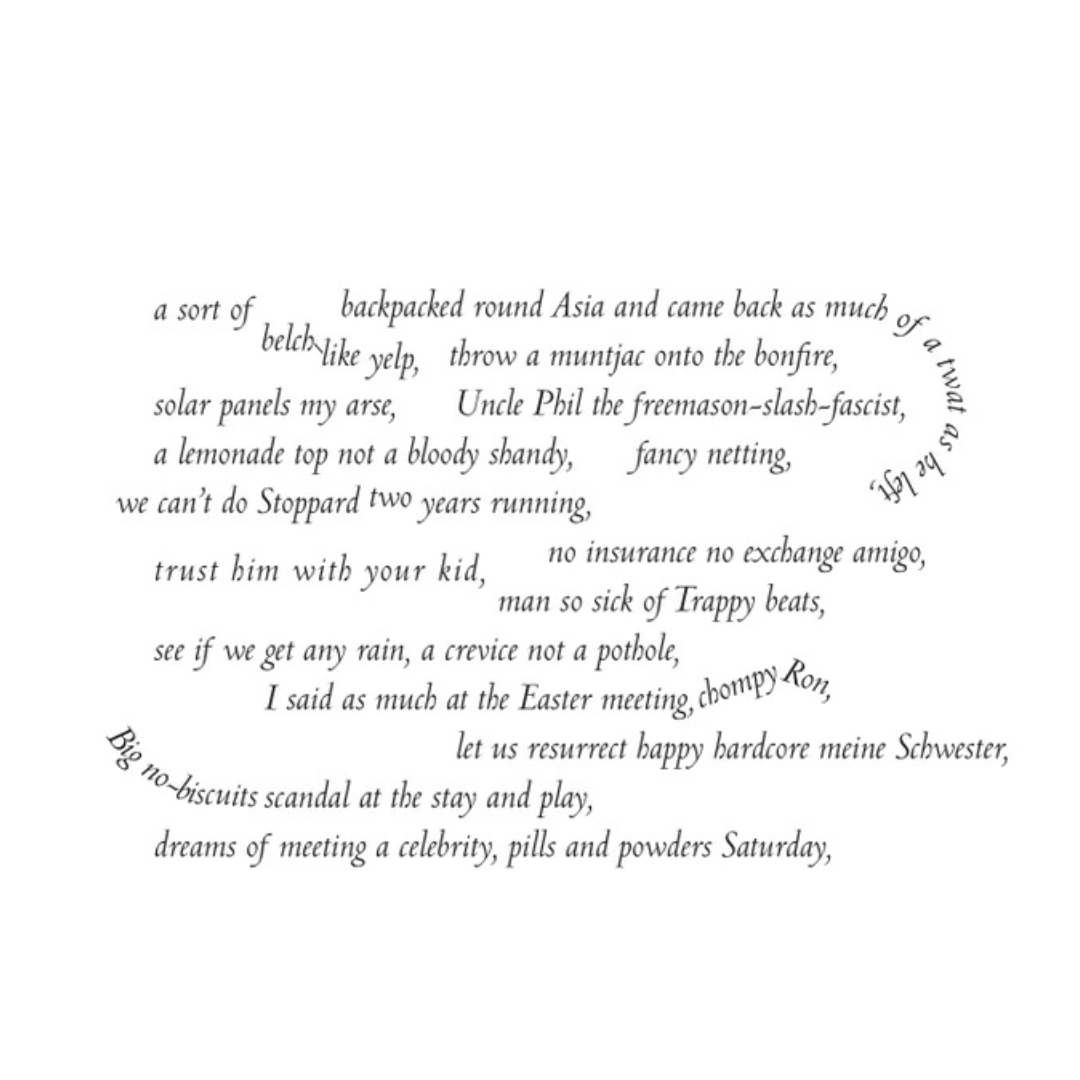 a sort of belch-like yelp,
backpacked round Asia and came back as much of a twat as he left,
throw a muntjac onto the bonfire,
solar panels my arse,
Uncle Phil the freemason-slash-fascist,
a lemonade top not a bloody shandy,
fancy netting,
we can't do Stoppard two years running,
no insurance no exchange amigo,
trust him with your kid,
man so sick of Trappy beats,
see if we get any rain, a crevice not a pothole,
I said as much at the Easter meeting, chompy Ron,
let us resurrect happy hardcore meine Schwester,
Big no-biscuits scandal at the stay and play,
dreams of meeting a celebrity, pills and powders Saturday,